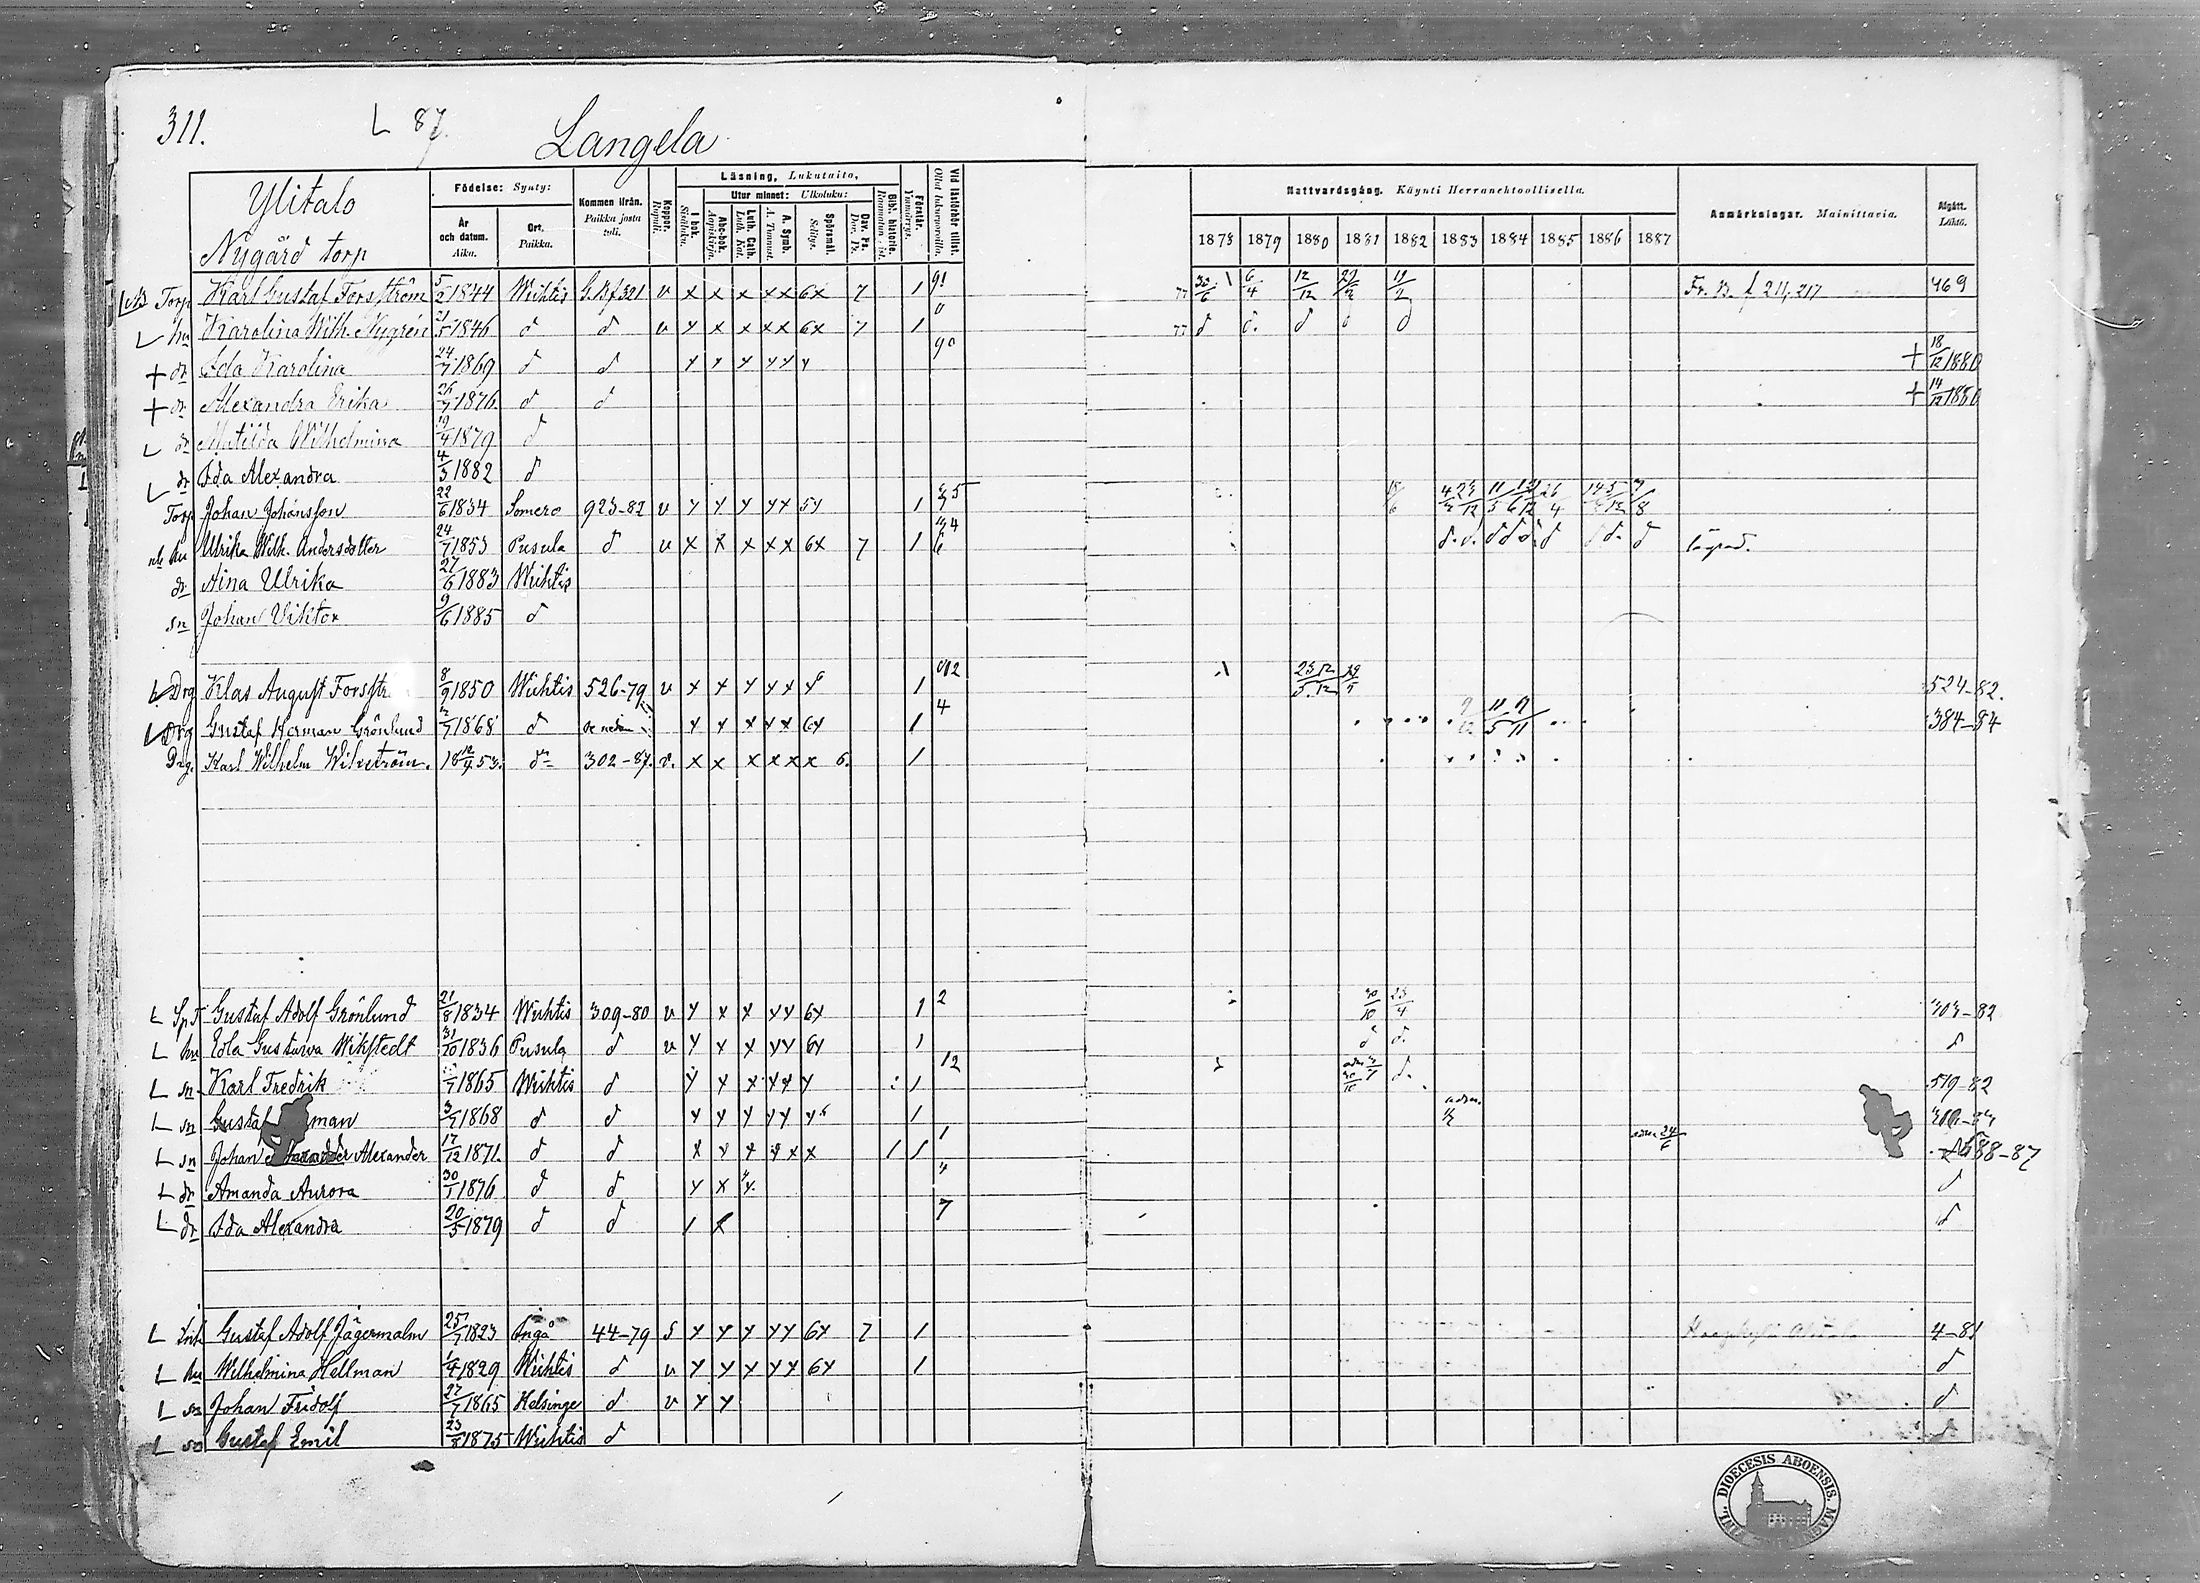 311.
L 87.
Langela
Ylitalo
Nygård torp
Födelse: Synty:
År och datum. Aika.
Ort. Paikka.
Kommen ifrån. Paikka josta tuli.
Koppor. Rupuli.
Läsning, Lukutaito,
I bok. Sisäluku.
Utur minnet: Ulkoluku:
Abc-bok. Aapiskirja.
Luth. Cath. Luth. Kat.
A. Symb. A. Tunnust.
Spörsmål. Selitys.
Dav. Ps. Dav. Ps.
Bibl. historie.
Förstår. Ymmärrys.
Vid läseförhör tillst. Ollut lukuvuoroilla.
Nattvardsgång. Käynti Herranehtoollisella.
1878 1879 1880 1881 1882 1883 1884 1885 1886 1887
Anmärkningar. Mainittavia.
Afgått. Lähtö.
Torp Karl Gustaf Forsström 5/2 1844 Wichtis G.B.f 321 v x x x x x 6x 7 1 30/6 6/4 12/12 Fr. B. f 211, 217 469
L hu Karolina Wilh. Nygrén 21/5 1846 d d v y x x x x 6x 7 1 77 d d. d d d
+ dr Ida Karolina 24/7 1869 d d y y y y y y + 18/12 1880
+ dr Alexandra Erika 26/7 1876 d d + 14/12 1880
L dr Matilda Wilhelmina 19/4 1879 d
L dr Ida Alexandra 4/3 1882 d
Torp Johan Johansson 22/6 1834 Somero 923-82 v y y y y y 5y 1
hu Ulrika Wilh. Andersdotter 24/7 1853 Pusula d v x x x x x 6x 7 1
dr Aina Ulrika 27/6 1883 Wichtis
sn Johan Viktor 9/6 1885 d
L Drg Klas August Forsstr 8/9 1850 Wichtis 526-79 v x x y x x 1 524-82.
L Drg Gustaf Herman Grönlund 3/7 1868 d y y x x x 6y 1 384-84
Drg. Karl Wilhelm Wikström. 18 12/4 53. d 302-87. v. x x x x x x 6. 1
L Gustaf Adolf Grönlund 21/8 1834 Wichtis 309-80 v y x x y y 6y 1 2 303-82
L hu Edla Gustava Wikstedt 31/10 1836 Pusula d v y x x y y 6y 1 d
L sn Karl Fredrik 1865 Wichtis d y x x y y y 1 12 519-82
L sn Gustaf man 3/7 1868 d d y y y y y 1 adm.
L sn Johan Alexander 17/12 1871. d d x y x x x x 1 1 24/6 588-87
L dr Amanda Aurora 30/1 1876 d d y x d
L dr Ida Alexandra 20/5 1879 d d 1 x 7 d
L Inh Gustaf Adolf Jägermalm 25/7 1823 Ingå 44-79 s y y y y y 6y 7 1 4-81
L hu Wilhelmina Hellman 1829 Wichtis d v y y y y y 6y 1 d
L sn Johan Fridolf 27/7 1865 Helsinge d v y y d
L sn Gustaf Emil 23/8 1875 Wichtis d d
DIOECESIS ABOENSIS